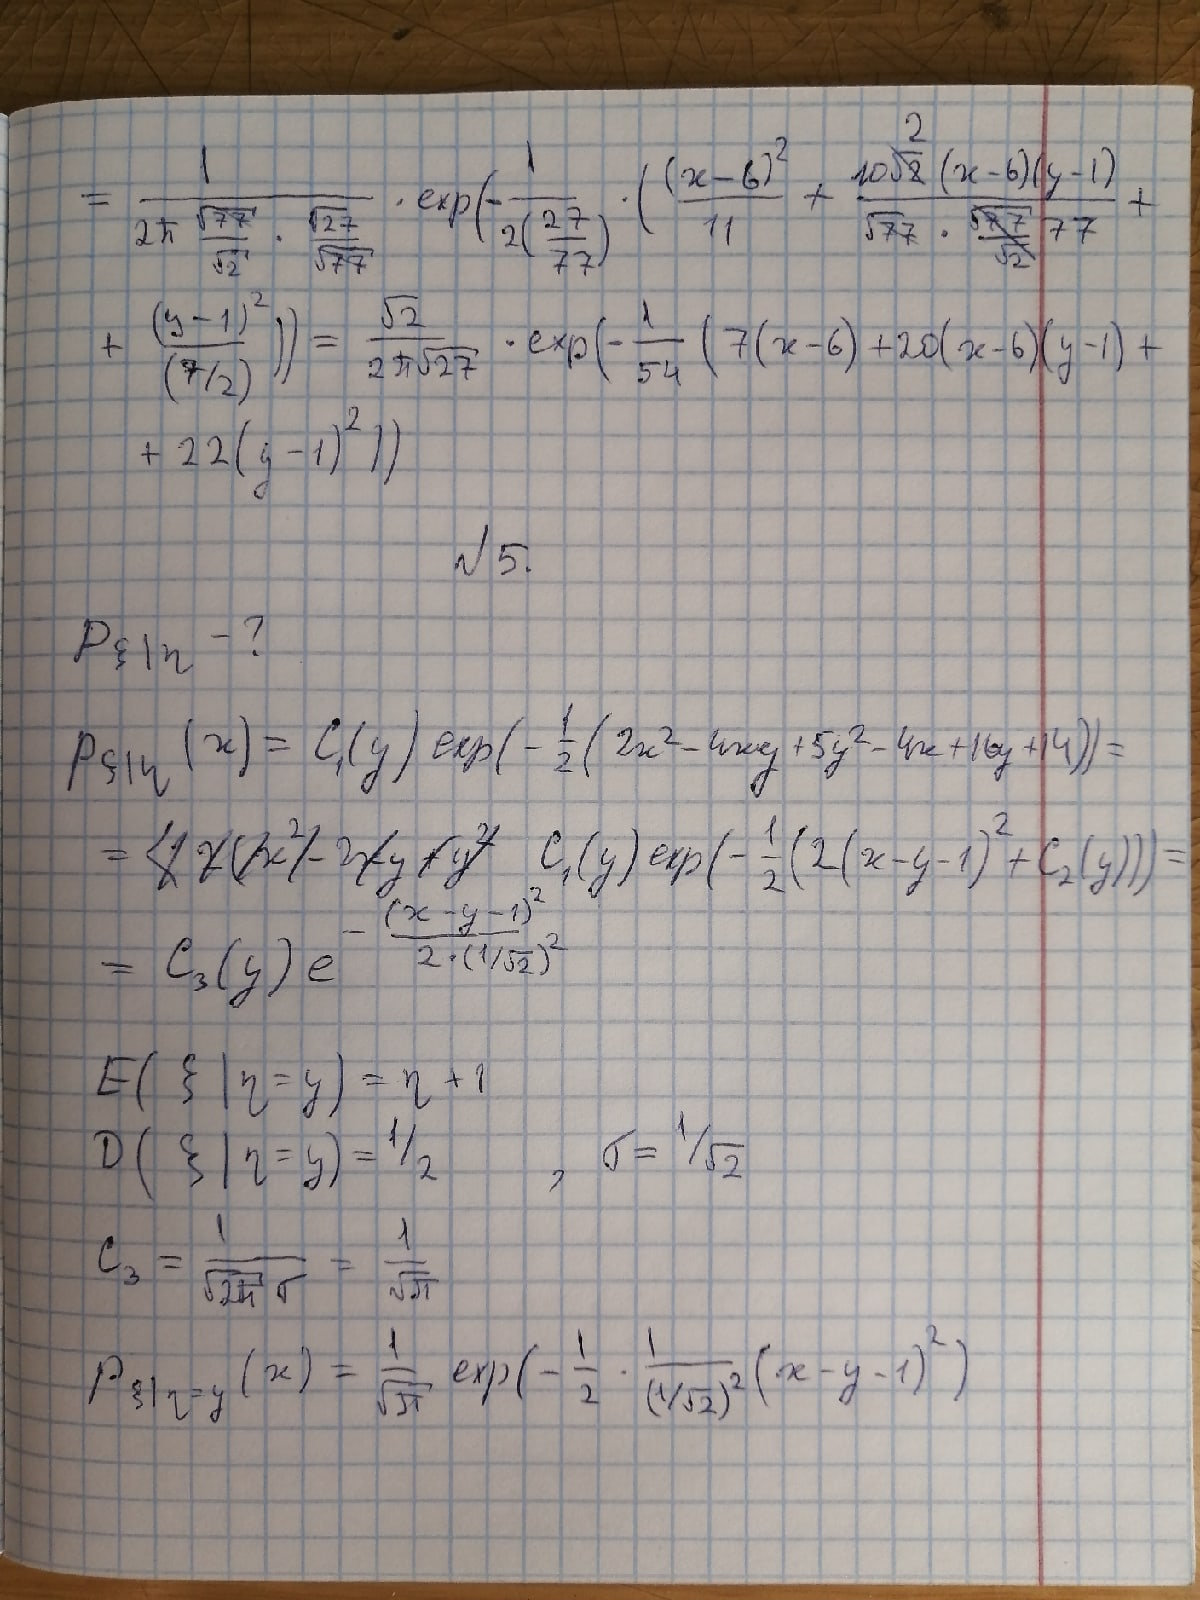 = 1/(2π √77/√2 · √27/√77) · exp(- 1/(2(27/77)) · ((x-6)²/11 + 20√2 (x-6)(y-1)/(√77 · √77/√2 77) +
+ (y-1)²/(7/2))) = √2/(2π√27) · exp(- 1/54 (7(x-6) + 20(x-6)(y-1) +
+ 22(y-1)²))
№5.
P ξ|η - ?
P ξ|η (x) = C₁(y) exp(- 1/2 (2x² - 4xy + 5y² - 4x + 16y + 14)) =
= C₁(y) exp(- 1/2 (2(x-y-1)² + C₂(y))) =
= C₃(y) e^(- (x-y-1)²/(2·(1/√2)²))
E( ξ | η = y) = η + 1
D( ξ | η = y) = 1/2 , σ = 1/√2
C₃ = 1/(√2π σ) = 1/√π
P ξ|η=y (x) = 1/√π exp(- 1/2 · 1/(1/√2)² (x-y-1)²)